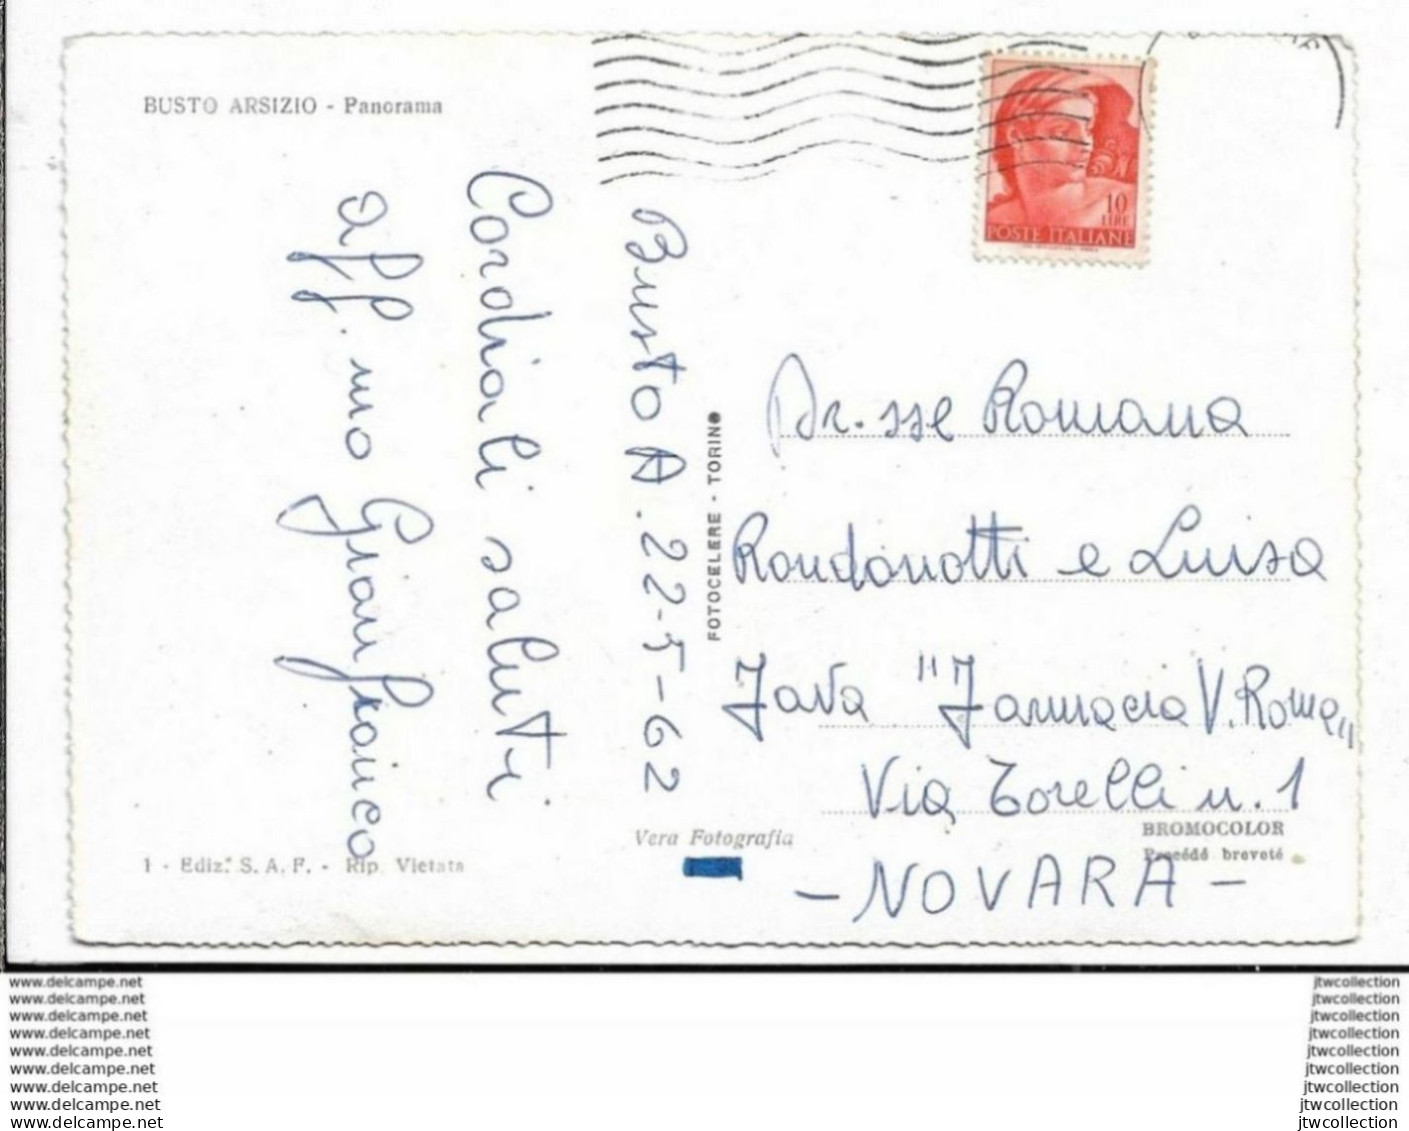 BUSTO ARSIZIO - Panorama
10
LIRE
POSTE ITALIANE
Busto A. 22-5-62
Cordiali saluti
aff.mo Gianfranco
FOTOCELERE - TORINO
Dr.sse Romana
Rondonotti e Luisa
Fava "Farmacia V. Roma"
Via Torelli n. 1
- NOVARA -
BROMOCOLOR
Procédé breveté
Vera Fotografia
1 - Ediz. S. A. F. - Rip. Vietata
www.delcampe.net
www.delcampe.net
www.delcampe.net
www.delcampe.net
www.delcampe.net
www.delcampe.net
www.delcampe.net
www.delcampe.net
www.delcampe.net
jtwcollection
jtwcollection
jtwcollection
jtwcollection
jtwcollection
jtwcollection
jtwcollection
jtwcollection
jtwcollection